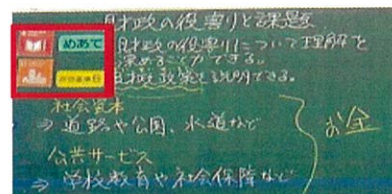 財政の役割と課題
めあて
財政の役割について理解を
深めることができる。
財政政策を説明できる。
社会資本
⇒道路や公園、水道など
お金
公共サービス
⇒学校教育や社会保障など